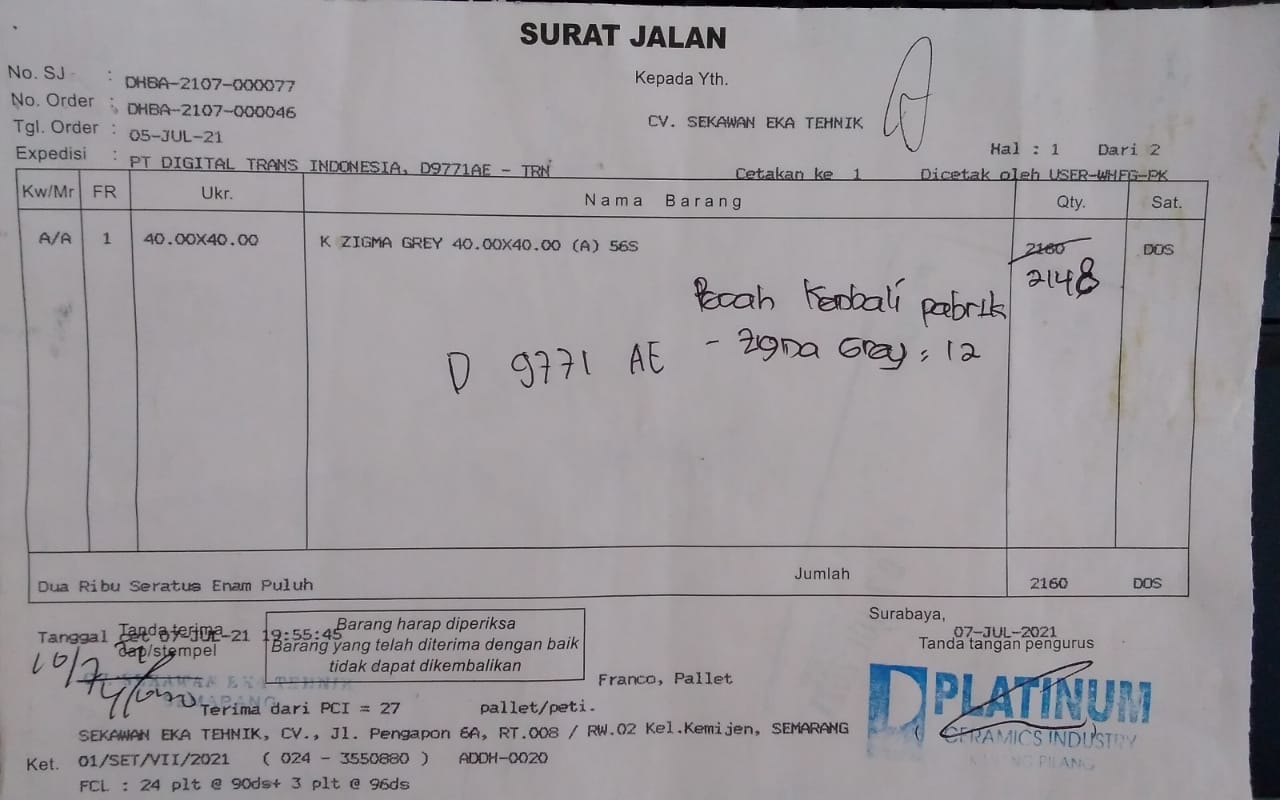 SURAT JALAN
No. SJ : DHBA-2107-000077
No. Order : DHBA-2107-000046
Tgl. Order : 05-JUL-21
Expedisi : PT DIGITAL TRANS INDONESIA, D9771AE - TRN
Kepada Yth.
CV. SEKAWAN EKA TEHNIK
Hal : 1 Dari 2
Cetakan ke 1 Dicetak oleh USER-WHFG-PK
Kw/Mr FR Ukr. Nama Barang Qty. Sat.
A/A 1 40.00X40.00 K ZIGMA GREY 40.00X40.00 (A) 56S 2160 DOS
2148
Pecah Kembali pabrik
D 9771 AE - Zigma Grey : 12
Dua Ribu Seratus Enam Puluh Jumlah 2160 DOS
Tanggal Cet 07-JUL-21 19:55:45
Tanda terima
dap/stempel
10/7
Barang harap diperiksa
Barang yang telah diterima dengan baik
tidak dapat dikembalikan
Surabaya,
07-JUL-2021
Tanda tangan pengurus
SEKAWAN EKA TEHNIK
SEMARANG
Franco, Pallet
PLATINUM
CERAMICS INDUSTRY
KARANG PILANG
Terima dari PCI = 27 pallet/peti.
SEKAWAN EKA TEHNIK, CV., Jl. Pengapon 6A, RT.008 / RW.02 Kel.Kemijen, SEMARANG
Ket. 01/SET/VII/2021 ( 024 - 3550880 ) ADDH-0020
FCL : 24 plt @ 90ds+ 3 plt @ 96ds